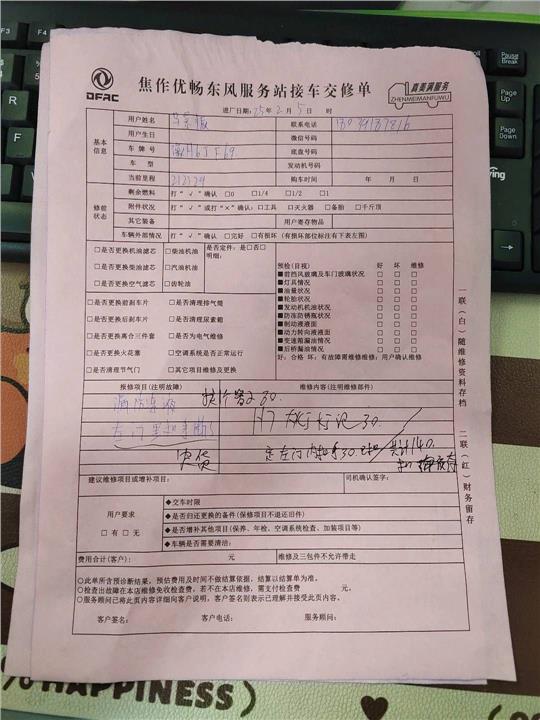 DFAC
焦作优畅东风服务站接车交修单
真美满服务
ZHENMEIMANFUWU
进厂日期: 25年2月5日 时
基本信息
用户姓名 联系电话
用户生日 微信号码
车牌号 底盘号码
车型 发动机号码
当前里程 212129 购车时间 年 月 日
修前状态
剩余燃料 打“√”确认 □0 □1/4 □1/2 □1
附件状况 打“√”或打“×”确认: □工具 □灭火器 □备胎 □千斤顶
其它装备 用户寄存物品
车辆外部情况 打“√”确认 □完好 □有损坏(有损坏部位标注有下表左图)
□是否更换机油滤芯 □柴油机油 是否定件: 是□否□
□是否更换柴油滤芯 □汽油机油 明细:
□是否更换空气滤芯 □齿轮油
□是否更换前刹车片 □是否清理排气筒
□是否更换后刹车片 □是否清理尿素箱
□是否更换离合三件套 □是否为电气维修
□是否更换火花塞 □空调系统是否正常运行
□是否清理节气门 □其它项目维修及更换
预检(目视) 好 坏 维修
■前挡风玻璃及车门玻璃状况 □ □ □
■灯具情况 □ □ □
■油量状况 □ □ □
■轮胎状况 □ □ □
■发动机机油状况 □ □ □
■防冻防锈瓶状况 □ □ □
■制动液液面 □ □ □
■动力转向液液面 □ □ □
■变速箱漏油情况 □ □ □
■后桥漏油情况 □ □ □
好: 合格 坏: 有故障需维修维修: 用户确认维修
报修项目(注明故障) 维修内容(注明维修部件)
30.
H7 大灯 30.
定货
左门内扣手30 共计140.
建议维修项目或增补项目: 司机确认签字:
用户要求
□有 □无
◆交车时限
◆是否归还更换的备件(保修项目不退旧件)
◆是否增补其他项目(保养、年检、空调系统检查、加装项目等)
◆车辆是否需要清洁:
费用合计(客户): 元 维修及三包件不允许带走
○此单所含预诊断结果,预估费用及时间不做结算依据,结算以结算单为准。
○检查出故障在本店维修免收检查费,若不在本店维修,需支付检查费 元。
○服务顾问已将此页内容详细向客户说明,客户签名则表示已理解并接受此页内容。
客户签名: 客户电话: 服务顾问:
一联(白)随维修资料存档
二联(红)财务留存
% HAPPINESS)
Pause Break
Page Up
Page Down